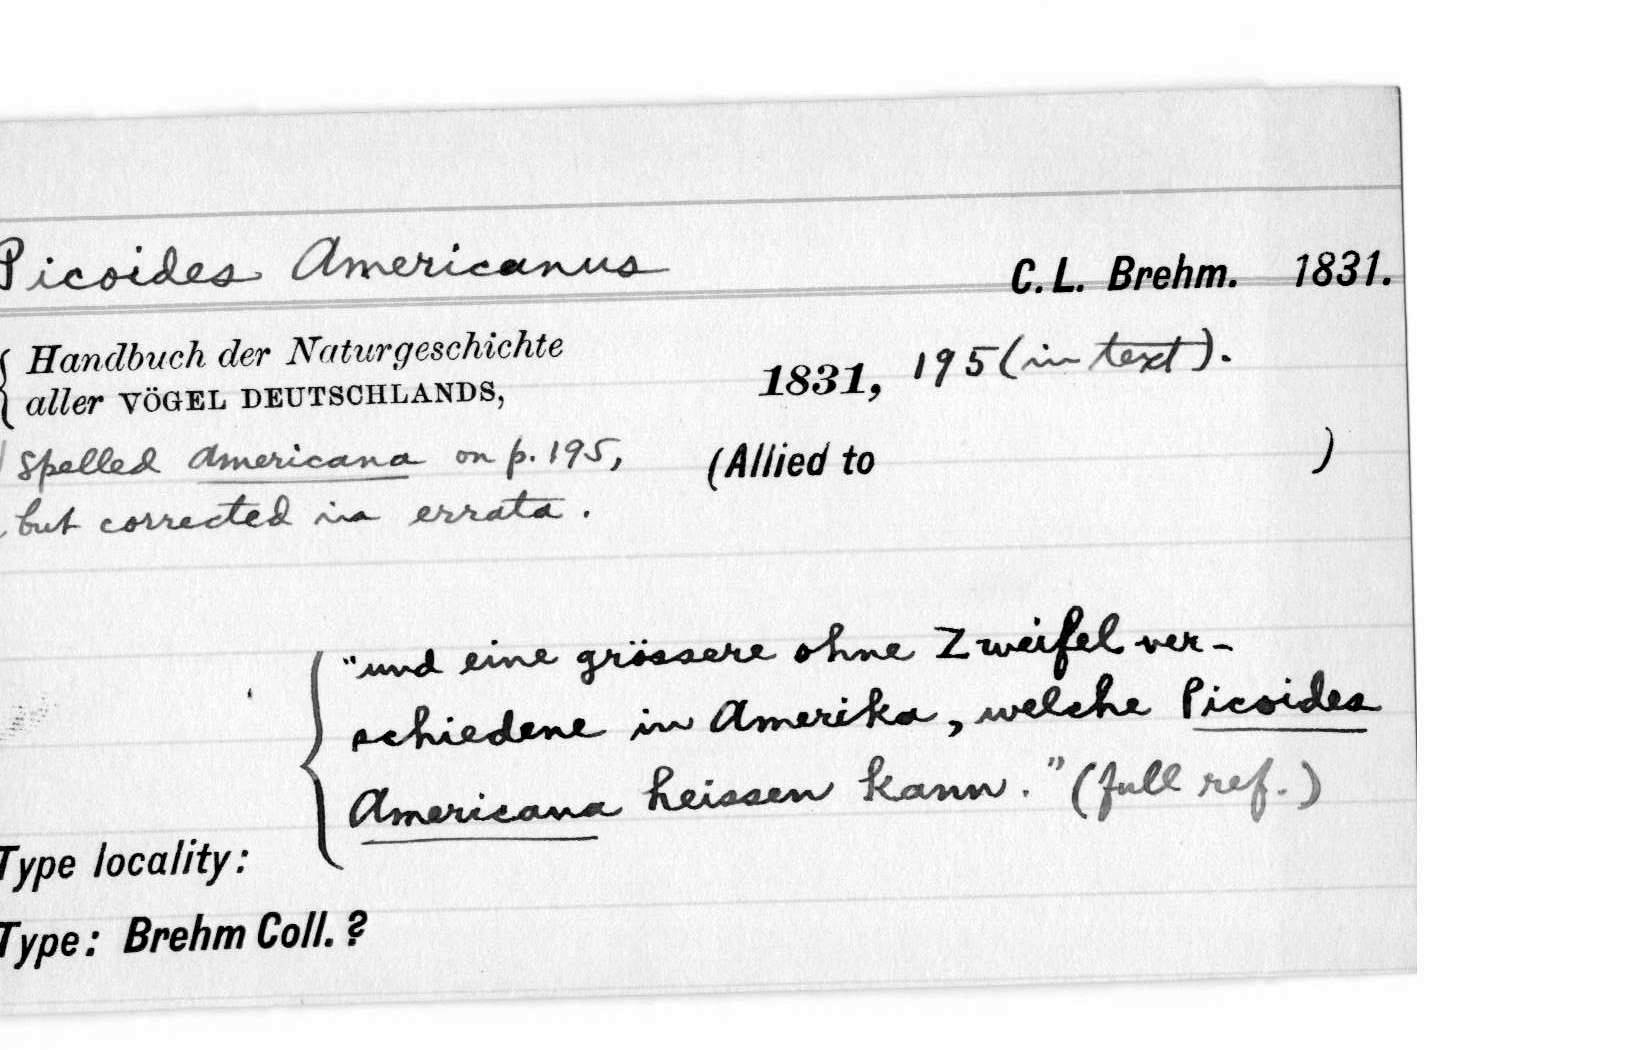 Picoides Americanus C.L. Brehm. 1831.
Handbuch der Naturgeschichte
aller VÖGEL DEUTSCHLANDS, 1831, 195 (in text).
Spelled Americana on p. 195, (Allied to )
but corrected in errata.
"und eine grössere ohne Zweifel ver-
schiedene in Amerika, welche Picoides
Americana heissen kann." (full ref.)
Type locality:
Type: Brehm Coll.?